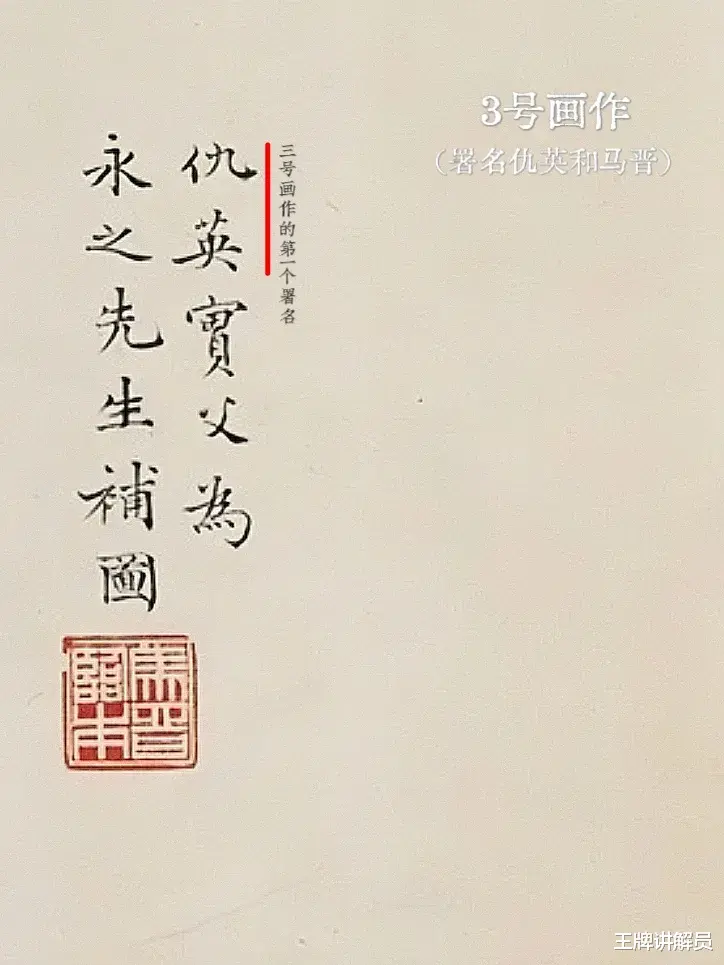 3号画作
（署名仇英和马晋）
三号画作的第一个署名
仇英實父為
永之先生補圖
馬晉
臨本
王牌讲解员